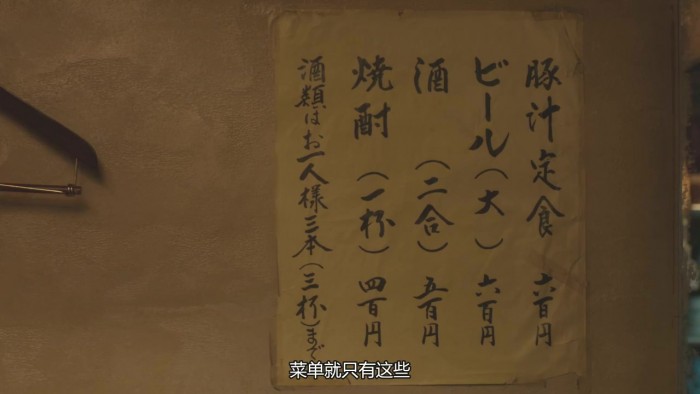 豚汁定食 六百円
ビール(大) 六百円
酒(二合) 五百円
焼酎(一杯) 四百円
酒類はお一人様三本(三杯)まで
菜单就只有这些